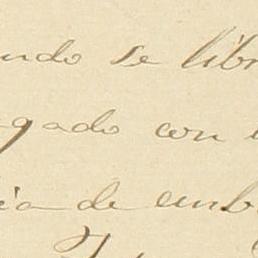 ndo se libr
gado con
ia de emb